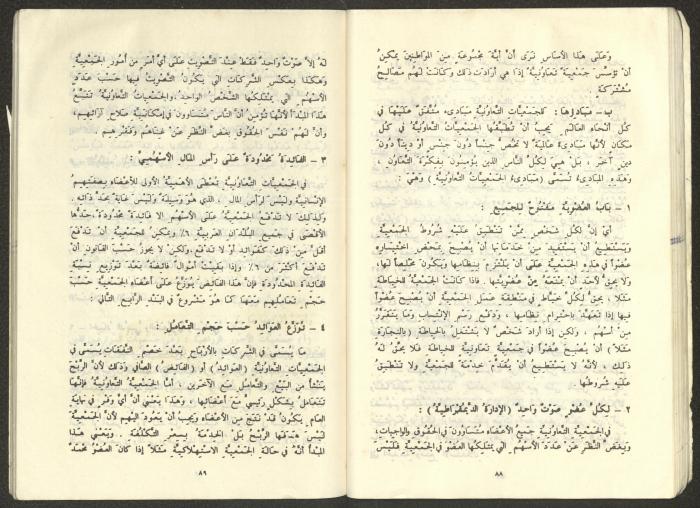 وَعَلى هٰذا الأساس نَرى أنَّ أيّةَ مجموعَةٍ مِنَ المُوَاطِنِينَ يمكِنُ
أنْ تؤسِّسَ جمعيَّةً تَعاوُنيَّةً إذا هِيَ أرادَت ذلِكَ وَكانَتْ لَهُمْ مَصَالِحُ
مُشْتَرَكَةٌ .
ب – مَبَادِؤها : للجمعيَّاتِ التَّعاونيَّةِ مَبَادىءُ مُتَّفَقٌ عَلَيْها في
كُلِّ أنْحاءِ العَالَمِ . يجبُ أنْ تُطبِّقَها الجَمْعيَّاتُ التَّعاوُنيَّةُ في كُلِّ
مَكانٍ لأنَّها مَبادىءُ عَالميَّةٌ لا تَخُصُّ جِنْساً دُونَ جِنْسٍ أوْ ديناً دُونَ
دينٍ آخَرَ ، بَلْ هِيَ لِكُلِّ النَّاسِ الذين يؤمِنُونَ بِفِكْرَةِ التَّعَاوُنِ ،
وَهٰذِهِ المبَادِىءُ تُسَمَّى ( مَبَادِىءُ الجَمْعيَّاتِ التَّعاونيَّةِ ) وَهْيَ :
١ – بَابُ العُضْويَّةِ مَفْتُوحٌ للجميع :
أيْ إنَّ لِكُلِّ شَخْصٍ ممَّنْ تَنْطَبِقُ عَلَيْهِ شُرُوطُ الجَمْعيَّةِ
وَيَسْتَطيعُ أنْ يَسْتَفيدَ مِنْ خَدَمَاتِها أنْ يُصْبِحَ بِمَحْضِ اخْتِيَارِهِ
عُضْواً في هٰذِهِ الجَمْعيَّةِ عَلى أنْ يَلْتَزِمَ بِنِظامِها وَيَكُونَ مُخْلِصاً لَها،
وَلا يحِقُّ لأحَدٍ أنْ يَمْنَعَهُ مِنْ عُضْويَّتِها . فَإذا كانَتْ الجَمْعيَّةُ للخِيَاطَةِ
مَثَلاً ، يحِقُّ لِكُلِّ خَيَّاطٍ في مِنْطَقَةِ عَمَلِ الجَمْعيَّةِ أنْ يُصْبِحَ عُضْواً
فيها إذا تَعَهَّدَ بِاحْتِرامِ نِظَامِها ، وَدَفْعِ رَسْمِ الانْتِسَابِ وَمَا يَتَقَرَّرُ
مِنْ أسْهُمٍ ، وَلكِنْ إذا أرادَ شَخْصٌ لا يَشْتَغِلُ بالخِياطَةِ ( بالنِّجَارَةِ
مَثَلاً ) أنْ يُصْبِحَ عُضْواً في جمْعِيَّةٍ تَعاونيَّةٍ للخِياطَةِ فَلا يَحِقُّ لَهُ
ذلِكَ ، لأنَّهُ لا يَسْتَطيعُ أنْ يُقَدِّمَ خِدْمَةً للجَمْعيَّةِ وَلا تَنْطَبِقُ
عَلَيْهِ شُرُوطُها .
٢ – لِكُلِّ عُضْوٍ صَوْتٌ وَاحِدٌ ( الإدَارَةُ الدِّيمُقْرَاطيَّةُ ) :
في الجَمْعيَّةِ التَّعاونيَّةِ جَميعُ الأعْضَاءِ مُتَسَاوُونَ في الحُقُوقِ والوَاجِبَاتِ،
وَبِغَضِّ النَّظَرِ عَنْ عَدَدِ الأسْهُمِ الَّتي يمْتَلِكُها العُضْوُ في الجَمْعيَّةِ فَلَيْسَ
٨٨
لَهُ إلاَّ صَوْتٌ وَاحِدٌ فَقَطْ عِنْدَ التَّصْويتِ عَلى أيِّ أمْرٍ مِنْ أمُورِ الجَمْعيَّةِ
وَهكذا بِعَكْسِ الشَّرِكاتِ الَّتي يَكُونُ التَّصْويتُ فيها حَسَبَ عَدَدِ
الأسْهُمِ الَّتي يمْتَلِكُها الشَّخْصُ الوَاحِد. والجَمْعيَّاتُ التَّعاونيَّةُ تَتَّبِعُ
هٰذا المبْدَأ لأنَّها تُؤمِنُ أنَّ النَّاسَ مُتَسَاوُونَ في إمْكانيَّةِ صَلاحِ آرائِهِمْ،
وَأنَّ لَهُمْ نَفْسَ الحُقُوقِ بِغَضِّ النَّظَرِ عَنْ غِنَاهُمْ وَفَقْرِهِمْ
٣ – الفَائِدَةُ مَحْدُودَةٌ عَلى رَأسِ المَالِ الأسْهُمِيِّ :
في الجَمْعيَّاتِ التَّعاونيَّةِ تُعْطَى الأهميَّةُ الأولى للأعْضَاءِ بِصِفَتِهِمُ
الإنْسَانيَّةِ وَلَيْسَ لِرَأسِ المَالِ ، الذي هُوَ وَسِيلَةٌ وَلَيْسَ غَايَةً بحَدِّ ذاتِهِ .
وَلِذلِكَ لا تَدْفَعُ الجَمْعيَّةُ عَلى الأسْهُمِ إلاَّ فَائِدَةً مَحْدُودَةً، حَدُّها
الأقْصَى في جَميعِ البُلْدَانِ العَرَبيَّةِ ٦٪ وَيمْكِنُ للجَمْعيَّةِ أنْ تَدْفَعَ
أقَلَّ مِنْ ذلِكَ كَفَوائِدَ أوْ لا تَدْفَعَ، وَلكِنْ لا يجوزُ حَسَبَ القَانُونِ أنْ
تَدْفَعَ أكْثَرَ مِنْ ٦٪ وَإذا بَقِيَتْ أمْوالٌ فَائِضَةٌ بَعْدَ تَوْزيعِ نِسْبَةِ
الفَائِدَةِ المَحْدُودَةِ فَإنَّ هٰذا الفَائِضَ يُوَزَّعُ عَلى أعْضَاءِ الجَمْعيَّةِ حَسَبَ
حَجْمِ تَعامُلِهِمْ مَعَها كما هُوَ مَشْرُوحٌ في البَنْدِ الرَّابِعِ التَّالي :
٤ – تُوَزَّعُ العَوَائِدُ حَسَبَ حَجْمِ التَّعامُلِ :
مَا يُسَمَّى في الشَّرِكاتِ بالأرْبَاحِ بَعْدَ خَصْمِ النَّفَقَاتِ يُسَمَّى في
الجَمْعيَّاتِ التَّعاونيَّةِ ( العَوَائِد ) أو ( الفَائِضُ ) الصَّافي وَذلِكَ لأنَّ الرِّبْحَ
يَنْشَأ مِنَ البَيْعِ والتَّعامُلِ مَعَ الآخَرينَ ، أمَّا الجَمْعيَّةُ التَّعاونيَّةُ فَإنَّها
تَتَعَامَلُ بِشَكْلٍ رَئيسيٍّ مَعَ أعْضَائِها ، وَهٰذا يَعْني أنَّ أيَّ وَفْرٍ في نِهَايَةِ
العَامِ يَكُونُ قَدْ نَتَجَ مِنَ الأعْضَاءِ وَيجبُ أنْ يَعُودَ إلَيْهِمْ لأنَّ الجَمْعيَّةَ
لَيْسَ هَدَفُها الرِّبْحَ بَلِ الخِدْمَةُ بِسِعْرِ التَّكْلُفَةِ . وَيَعْني هٰذا
المبْدَأ أنَّهُ في حَالَةِ الجَمْعيَّةِ الاسْتِهْلاكيَّةِ مَثَلاً إذا كَانَ العُضْوُ مُحَمَّدٌ
٨٩